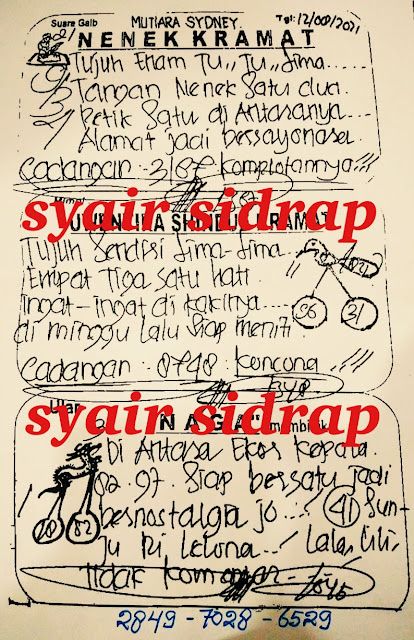 Suara Gaib MUTIARA SYDNEY. Tgl: 12/08/2021
NENEK KRAMAT
Tujuh Enam Tu,, Tu,, Lima......
Tangan Nenek Satu dua.
Petik Satu di Antaranya...
Alamat jadi bersayonara
Cadangan : 3187 Komplotannya
syair sidrap
KRAMAT
Tujuh Sendiri Lima-Lima
Empat Tiga Satu hati
Ingat-ingat di kakinya.....
di minggu lalu Siap meniti
96 31
Cadangan : 8748 Kencana
syair sidrap
Ular NAGA
Di Antara Ekor Kepala
02.97. Siap bersatu jadi
bernostalgia jo... 41 Sun-
ju Ki Lelona.. Lala, Lili,
82
Tidak
2849 - 7028 - 6529